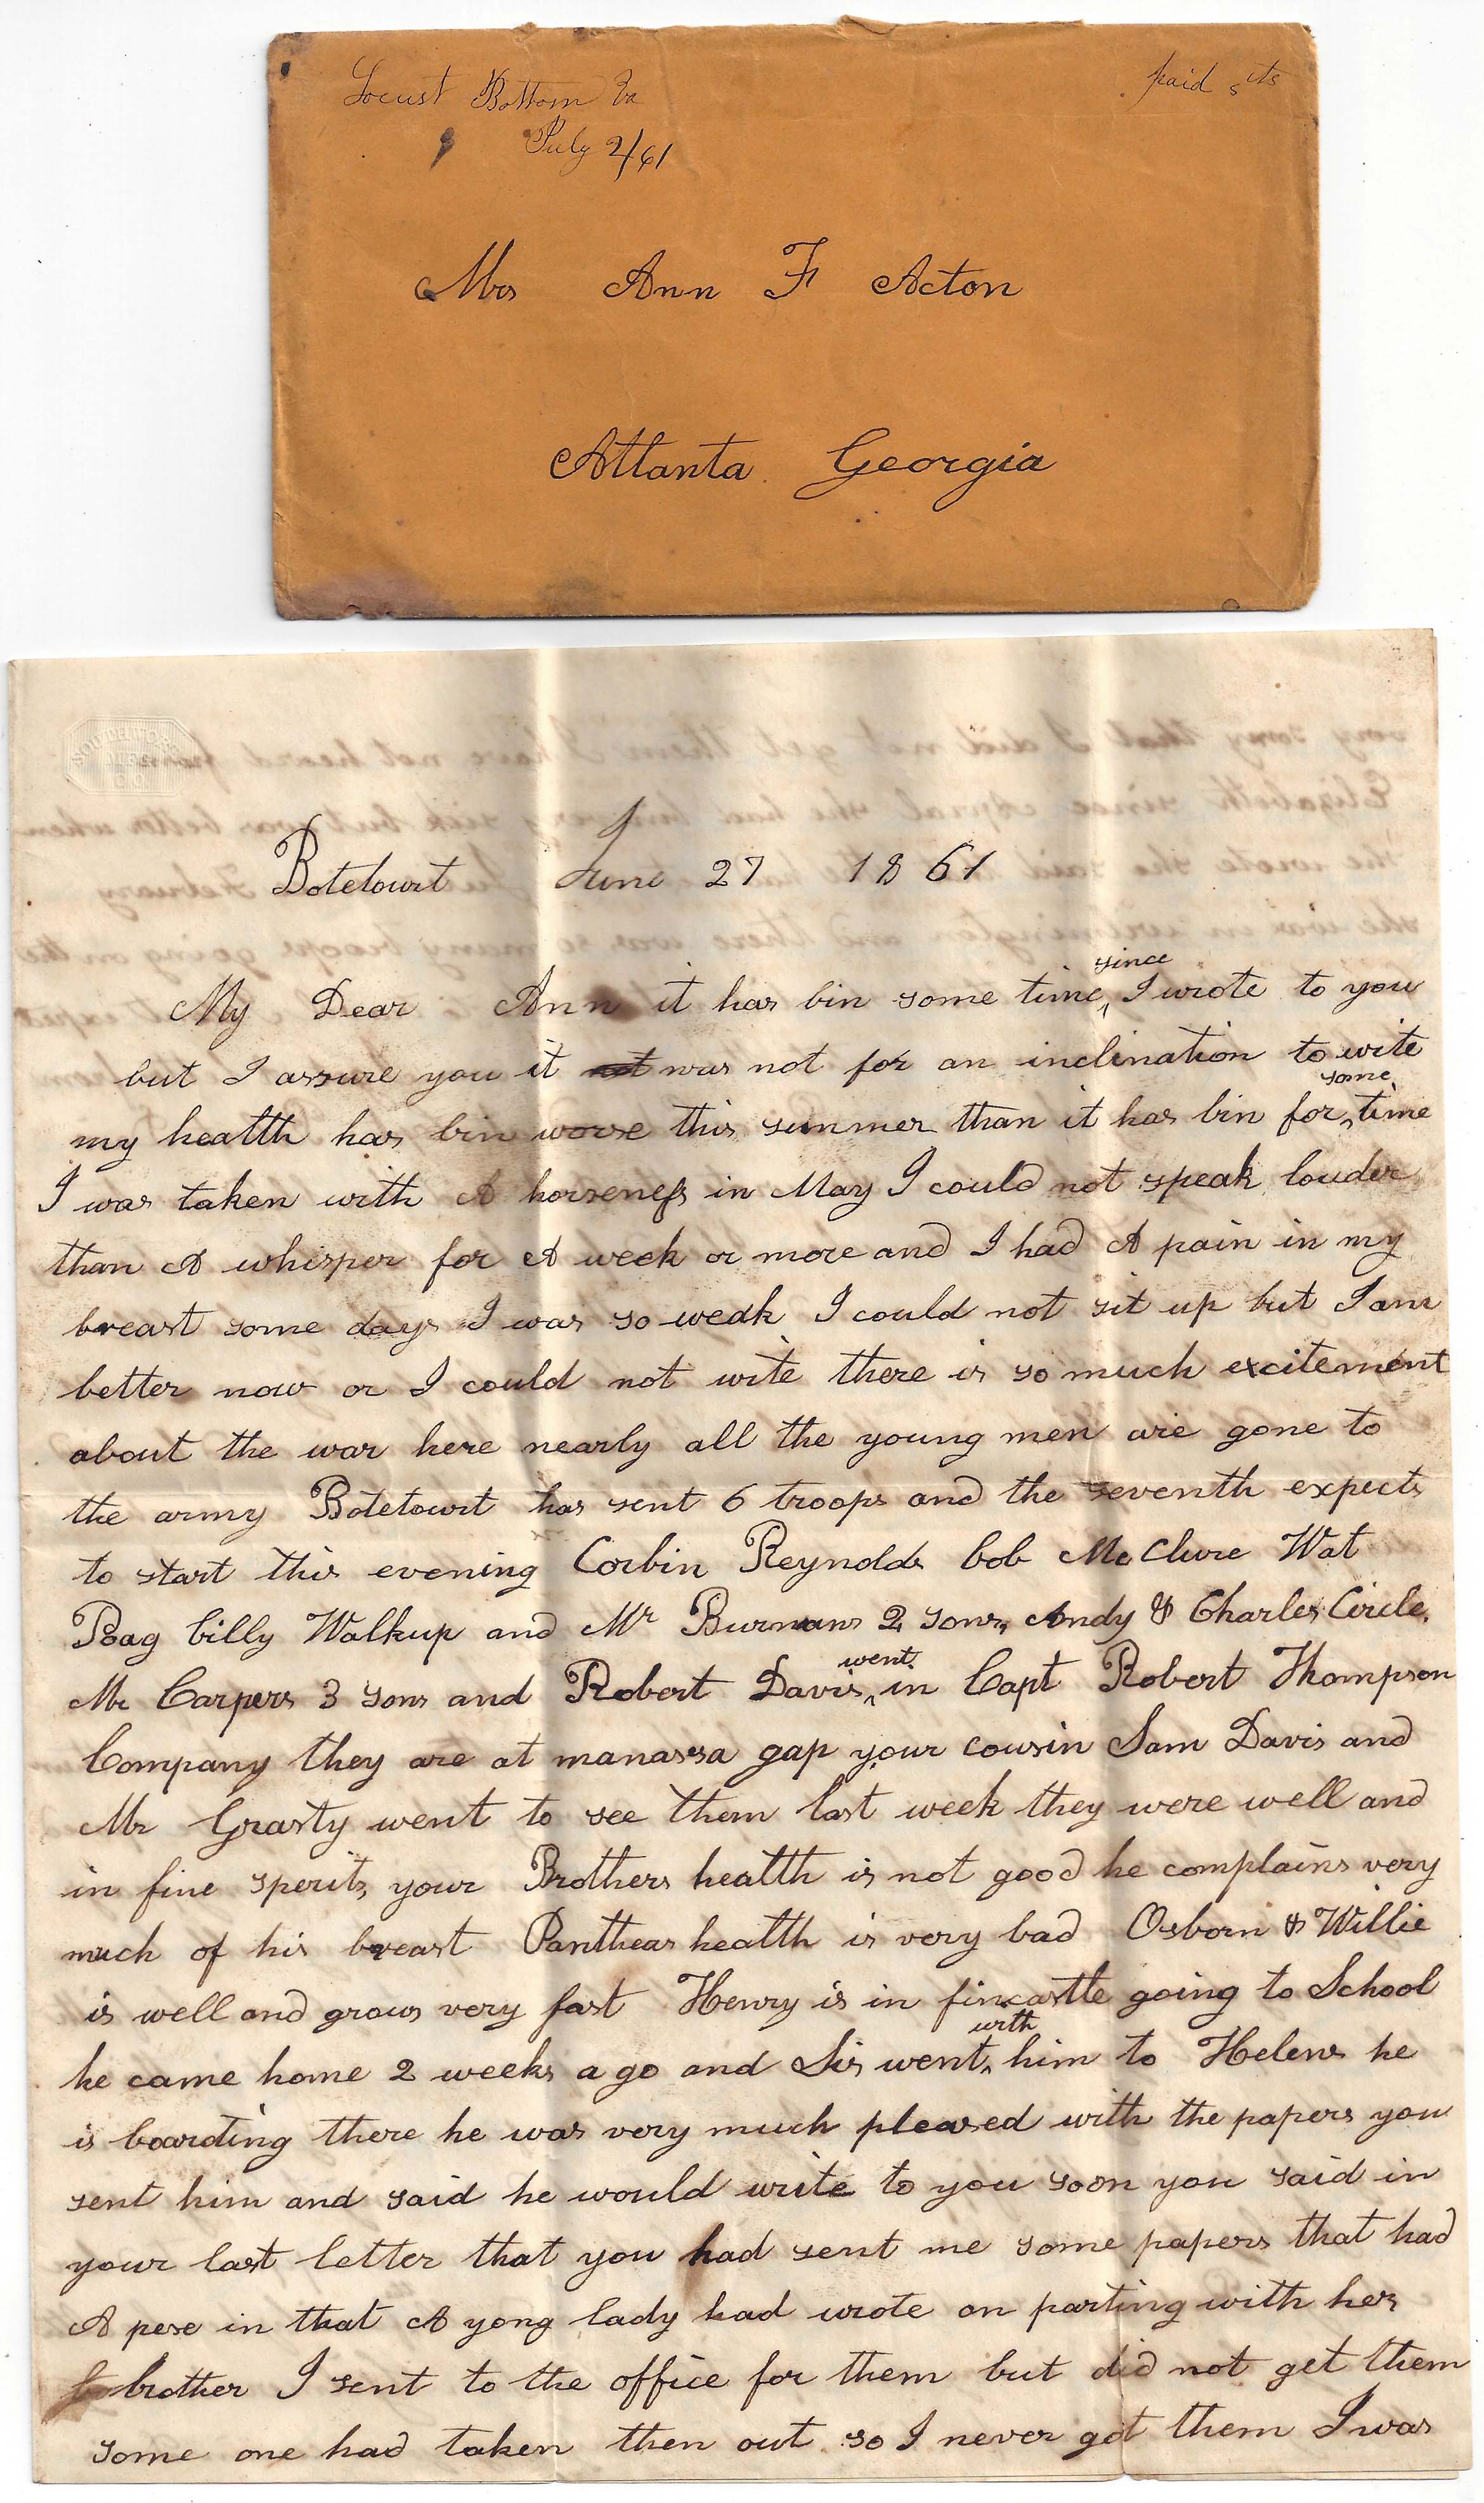 Locust Bottom Va
paid 5 cts
July 2/61
Mrs Ann F Acton
Atlanta Georgia
Botetourt June 27 1861
since
My Dear Ann it has bin some time ‸ I wrote to you
but I assure you it was not for an inclination to wite
some
my health has bin worse this summer than it has bin for ‸ time
I was taken with A horseness in May I could not speak louder
than A whisper for A week or more and I had A pain in my
breast some days I was so weak I could not sit up but I am
better now or I could not wite there is so much excitement
about the war here nearly all the young men are gone to
the army Botetourt has sent 6 troops and the seventh expects
to start this evening Corbin Reynolds bob Mc Clure Wat
Poag billy Walkup and Mr Burmans 2 sons, Andy & Charles Circle,
went
Mr Carpers 3 sons and Robert Davis ‸ in Capt Robert Thompson
Company they are at manassa gap your cousin Sam Davis and
Mr Grasty went to see them last week they were well and
in fine sperits, your Brothers health is not good he complains very
much of his breast Pantheas health is very bad Osborn & Willie
is well and grows very fast Henry is in fincastle going to School
with
he came home 2 weeks a go and Sis went ‸ him to Helens he
is boarding there he was very much pleased with the papers you
sent him and said he would write to you soon you said in
your last letter that you had sent me some papers that had
A pese in that A yong lady had wrote on parting with her
brother I sent to the office for them but did not get them
some one had taken then out so I never got them I was